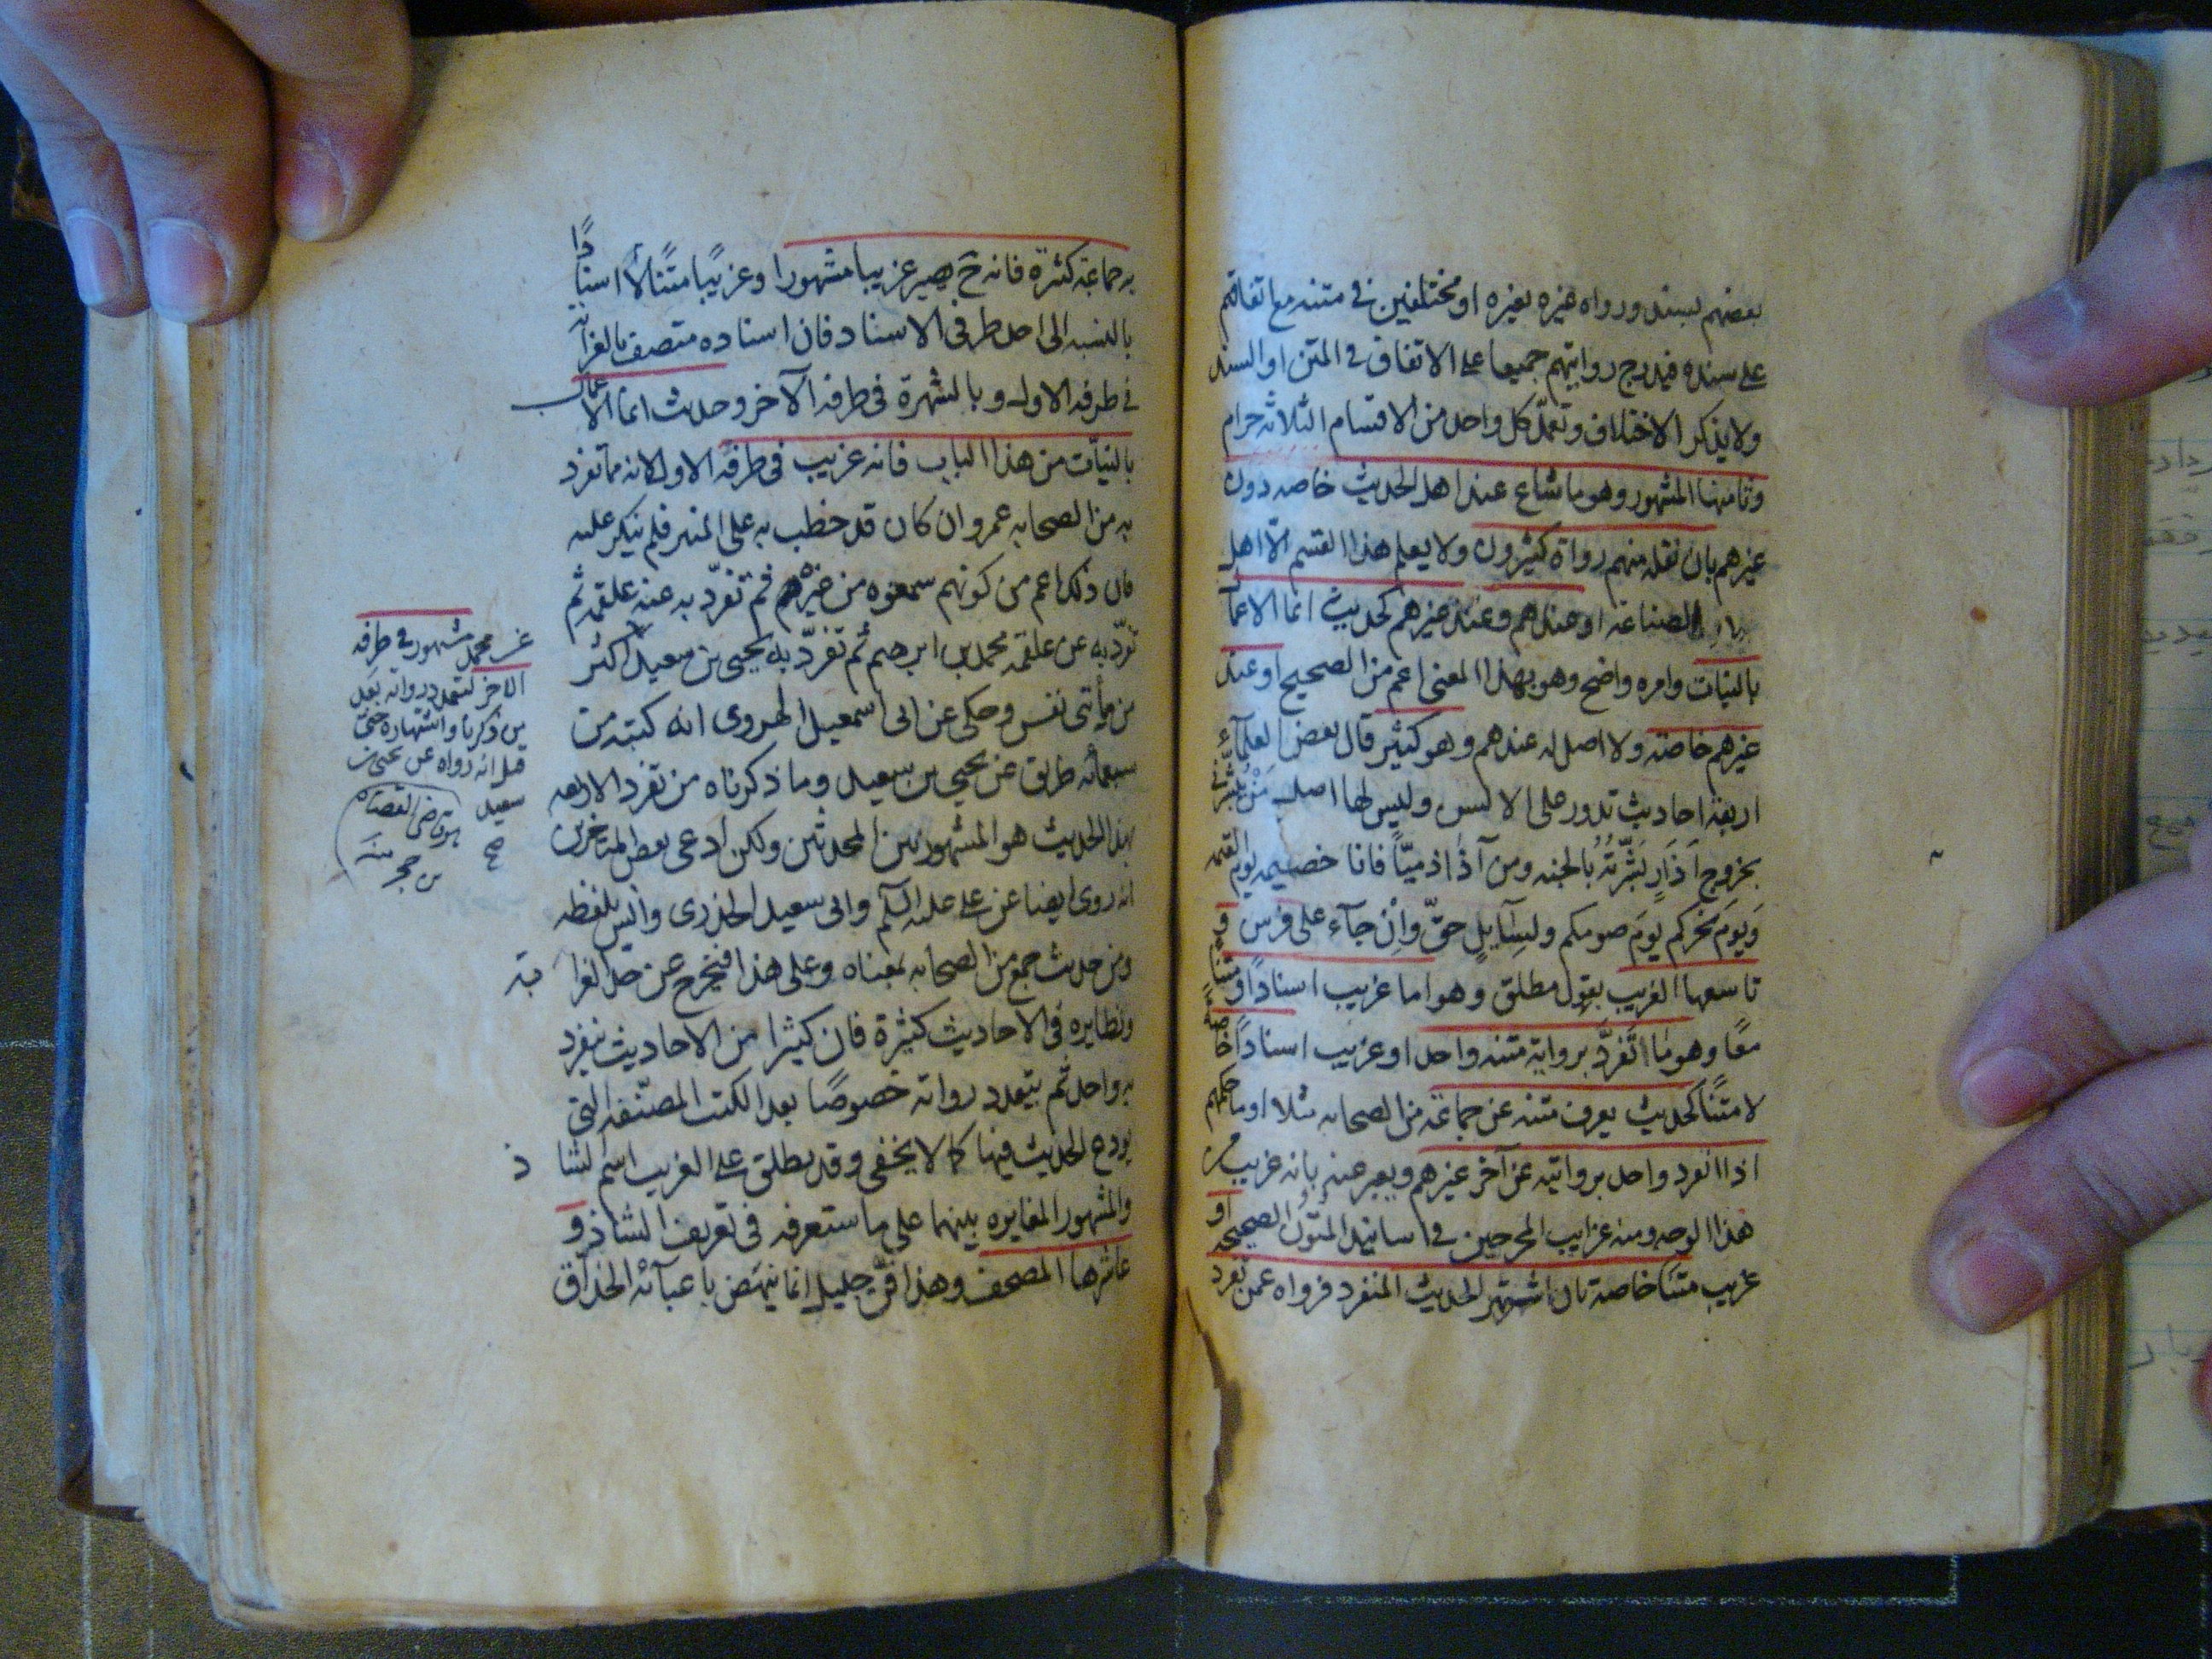 بعضهم بسند ورواه غيره بغيره او مختلفين في متنه مع اتفاقهم
على سنده فيدرج روايتهم جميعا على الاتفاق في المتن او السند
ولا يذكر الاختلاف وتعمّد كل واحد من الاقسام الثلاثه حرام
وثامنها المشهور وهو ما شاع عند اهل الحديث خاصه دون
غيرهم بان نقله منهم رواة كثيرون ولا يعلم هذا القسم الّا اهل
الصناعه او عندهم وعند غيرهم كحديث انما الاعمال
بالنيّات وامره واضح وهو بهذا المعنى اعم من الصحيح او عند
غيرهم خاصّة ولا اصل له عندهم وهو كثير قال بعض العلمآء
اربعة احاديث تدور على الالسن وليس لها اصل مَنْ بَشَّرَني
بخروج اَذارٍ بَشَّرْتُهُ بالجنه ومن آذٰى ذميّاً فانا خصيمه يوم القيمه
وَيومَ نحركم يومَ صومكم ولِلسّآيلِ حقّ وَاِنْ جآء على فرس و
تاسعها الغريب بقول مطلق وهو اما غريب اسنادًا ومتنا
معًا وهو ما تفرّد برواية متنه واحد او غريب اسنادًا خاصّة
لا متنًا كحديث يعرف متنه عن جماعة من الصحابه مثلا او ما في حكمهم
اذا انفرد واحد بروايته عن آخر غيرهم ويعبر عنه بانه غريب من
هذا الوجه ومنه غرايب المخرجين في اسانيد المتُون الصحيحه او
غريب متنًا خاصة بان اشتهر الحديث المنفرد فرواه عمن تفرد
به جماعة كثيرة فانه ح يصير غريبا مشهورا وغريبًا متنًا لا اسنادًا
بالنسبه الى احد طرفي الاسناد فان اسناده متصف بالغرابة
في طرفه الاول وبالشهرة في طرفه الآخر وحديث انما الاعمال
بالنيّات من هذا الباب فانه غريب في طرفه الاول لانه مما تفرد
به من الصحابه عمر وان كان قد خطب به على المنبر فلم ينكر عليه
فان ذلك اعم من كونهم سمعوه من غيرهم ثم تفرّد به عنه علقمه ثم
تفرّد به عن علقمه محمد بن ابرهيم ثم تفرّد به يحيى بن سعيد اكثر
من مأتى نفس وحكى عن ابى اسمعيل الهروى انه كتبه من
سبعمائه طريق عن يحيى بن سعيد وما ذكرناه من تفرد الاربعه
بهذا الحديث هو المشهور بين المحدثين ولكن ادعى بعض المتاخرين
انه روى ايضا عن على عليه السلم وابى سعيد الخدرى وانس بلفظه
ومن حديث جمع من الصحابه بمعناه وعلى هذا فيخرج عن حد الغرابة
ونظايره في الاحاديث كثيرة فان كثيرا من الاحاديث ينفرد
به واحد ثم يتعدد رواته خصوصًا بعد الكتب المصنّفه التى
يودع الحديث فيها كما لا يخفى وقد يطلق على الغريب اسم الشاذ
والمشهور المغايره بينهما على ما ستعرفه في تعريف الشاذ و
عاشرها المصحف وهذا فنّ جليل انما ينهض باعبآئه الحذاق
مشهور في طرفه
الاخر لتعدد رواته بعد
من ذكرنا واشتهاره حتى
قيل انه رواه عن يحيى بن
سعيد
صح